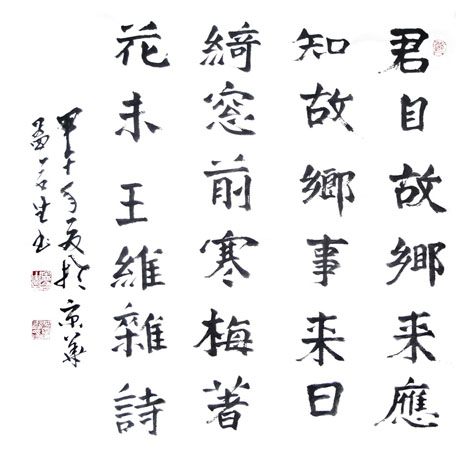 君自故鄉来應
知故鄉事来日
綺窓前寒梅著
花未 王維雜詩
甲午年夏於京華